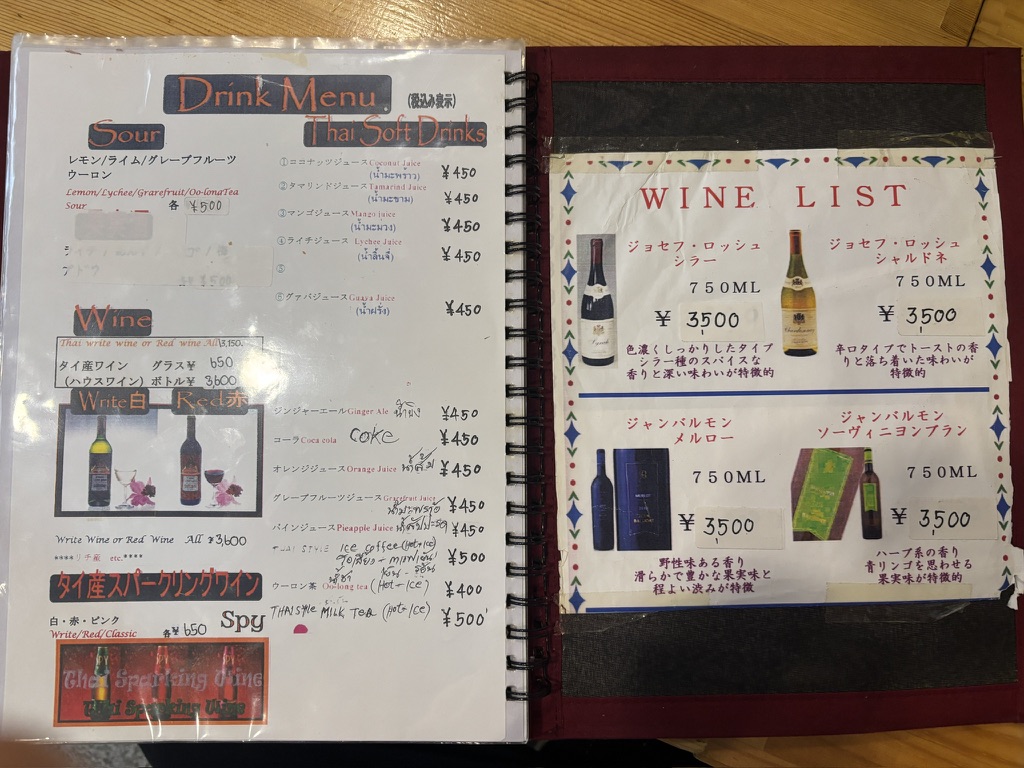 Drink Menu
(税込み表示)
Sour
レモン/ライム/グレープフルーツ
ウーロン
Lemon/Lychee/Grarefruit/Oo-longTea
Sour
各 ¥500
Wine
Thai write wine or Red wine All\3,150.
タイ産ワイン グラス¥ 650
(ハウスワイン) ボトル¥ 3,600
Write白 Red赤
Write Wine or Red Wine All ¥3,600
****リチ産 etc.****
タイ産スパークリングワイン
白・赤・ピンク
Write/Red/Classic
各¥ 650
Spy
Thai Sparking Wine
Thai Sparking Wine
Thai Soft Drinks
①ココナッツジュースCoconut Juice ¥450
(น้ำมะพร้าว)
②タマリンドジュースTamarind Juice ¥450
(น้ำมะขาม)
③マンゴジュースMango juice ¥450
(น้ำมะม่วง)
④ライチジュース Lychee Juice ¥450
(น้ำลิ้นจี่)
⑤
⑥グァバジュースGuava Juice ¥450
(น้ำฝรั่ง)
ジンジャーエールGinger Ale น้ำขิง ¥450
コーラCoca cola coke ¥450
オレンジジュースOrange Juice น้ำส้ม ¥450
グレープフルーツジュースGrapefruit Juice ¥450
パインジュースPieapple Juice น้ำสับปะรด ¥450
THAI STYLE Ice coffee (Hot+Ice) ¥500
ウーロン茶 Oo-long tea (Hot-Ice) ¥400
THAI STYLE MILK TEA (Hot-Ice) ¥500
WINE LIST
ジョセフ・ロッシュ
シラー
750ML
¥ 3500
色濃くしっかりしたタイプ
シラー種のスパイスな
香りと深い味わいが特徴的
ジョセフ・ロッシュ
シャルドネ
750ML
¥ 3500
辛口タイプでトーストの香
りと落ち着いた味わいが
特徴的
ジャンバルモン
メルロー
750ML
¥ 3500
野性味ある香り
滑らかで豊かな果実味と
程よい渋みが特徴
ジャンバルモン
ソーヴィニヨンブラン
750ML
¥ 3500
ハーブ系の香り
青リンゴを思わせる
果実味が特徴的